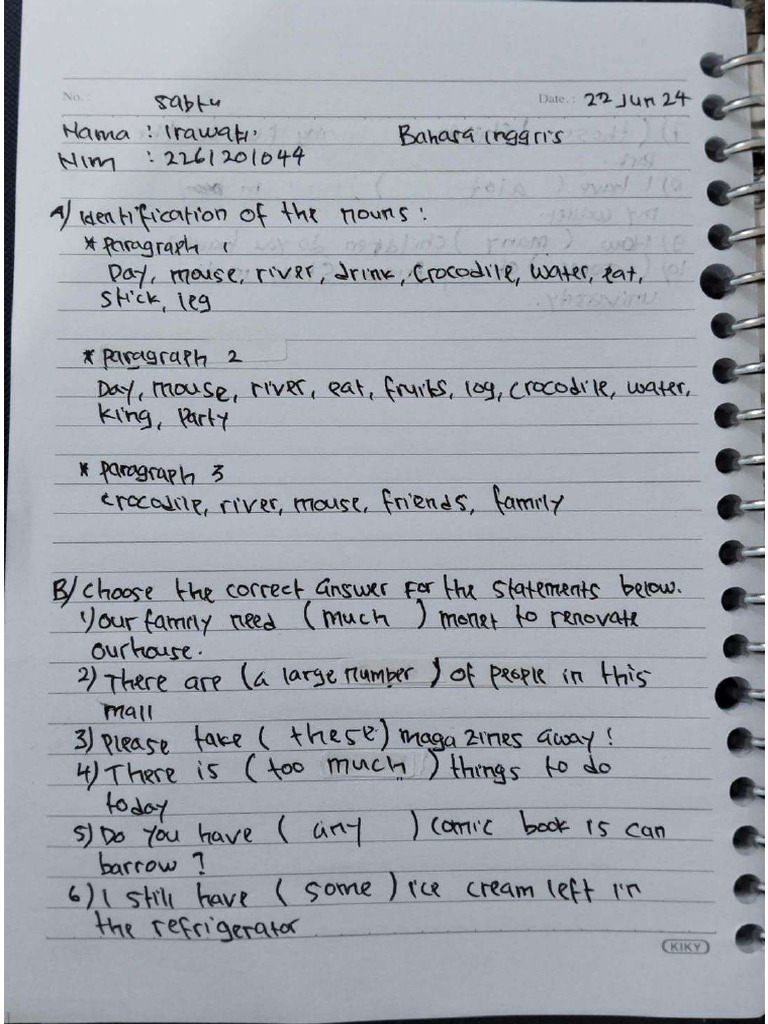 No.: sabtu Date.: 22 Jun 24
Nama : Irawati Bahasa inggris
Nim : 2261201044
A/ Identification of the nouns :
* paragraph 1
Day, mouse, river, drink, crocodile, water, eat,
stick, leg
* paragraph 2
Day, mouse, river, eat, fruits, log, crocodile, water,
king, party
* paragraph 3
crocodile, river, mouse, friends, family
B/ choose the correct answer for the statements below.
1) our family need (much) monet to renovate
our house.
2) There are (a large number) of people in this
mall
3) please take (these) magazines away!
4) There is (too much) things to do
today
5) Do you have (any) comic book is can
barrow?
6) I still have (some) ice cream left in
the refrigerator
KIKY